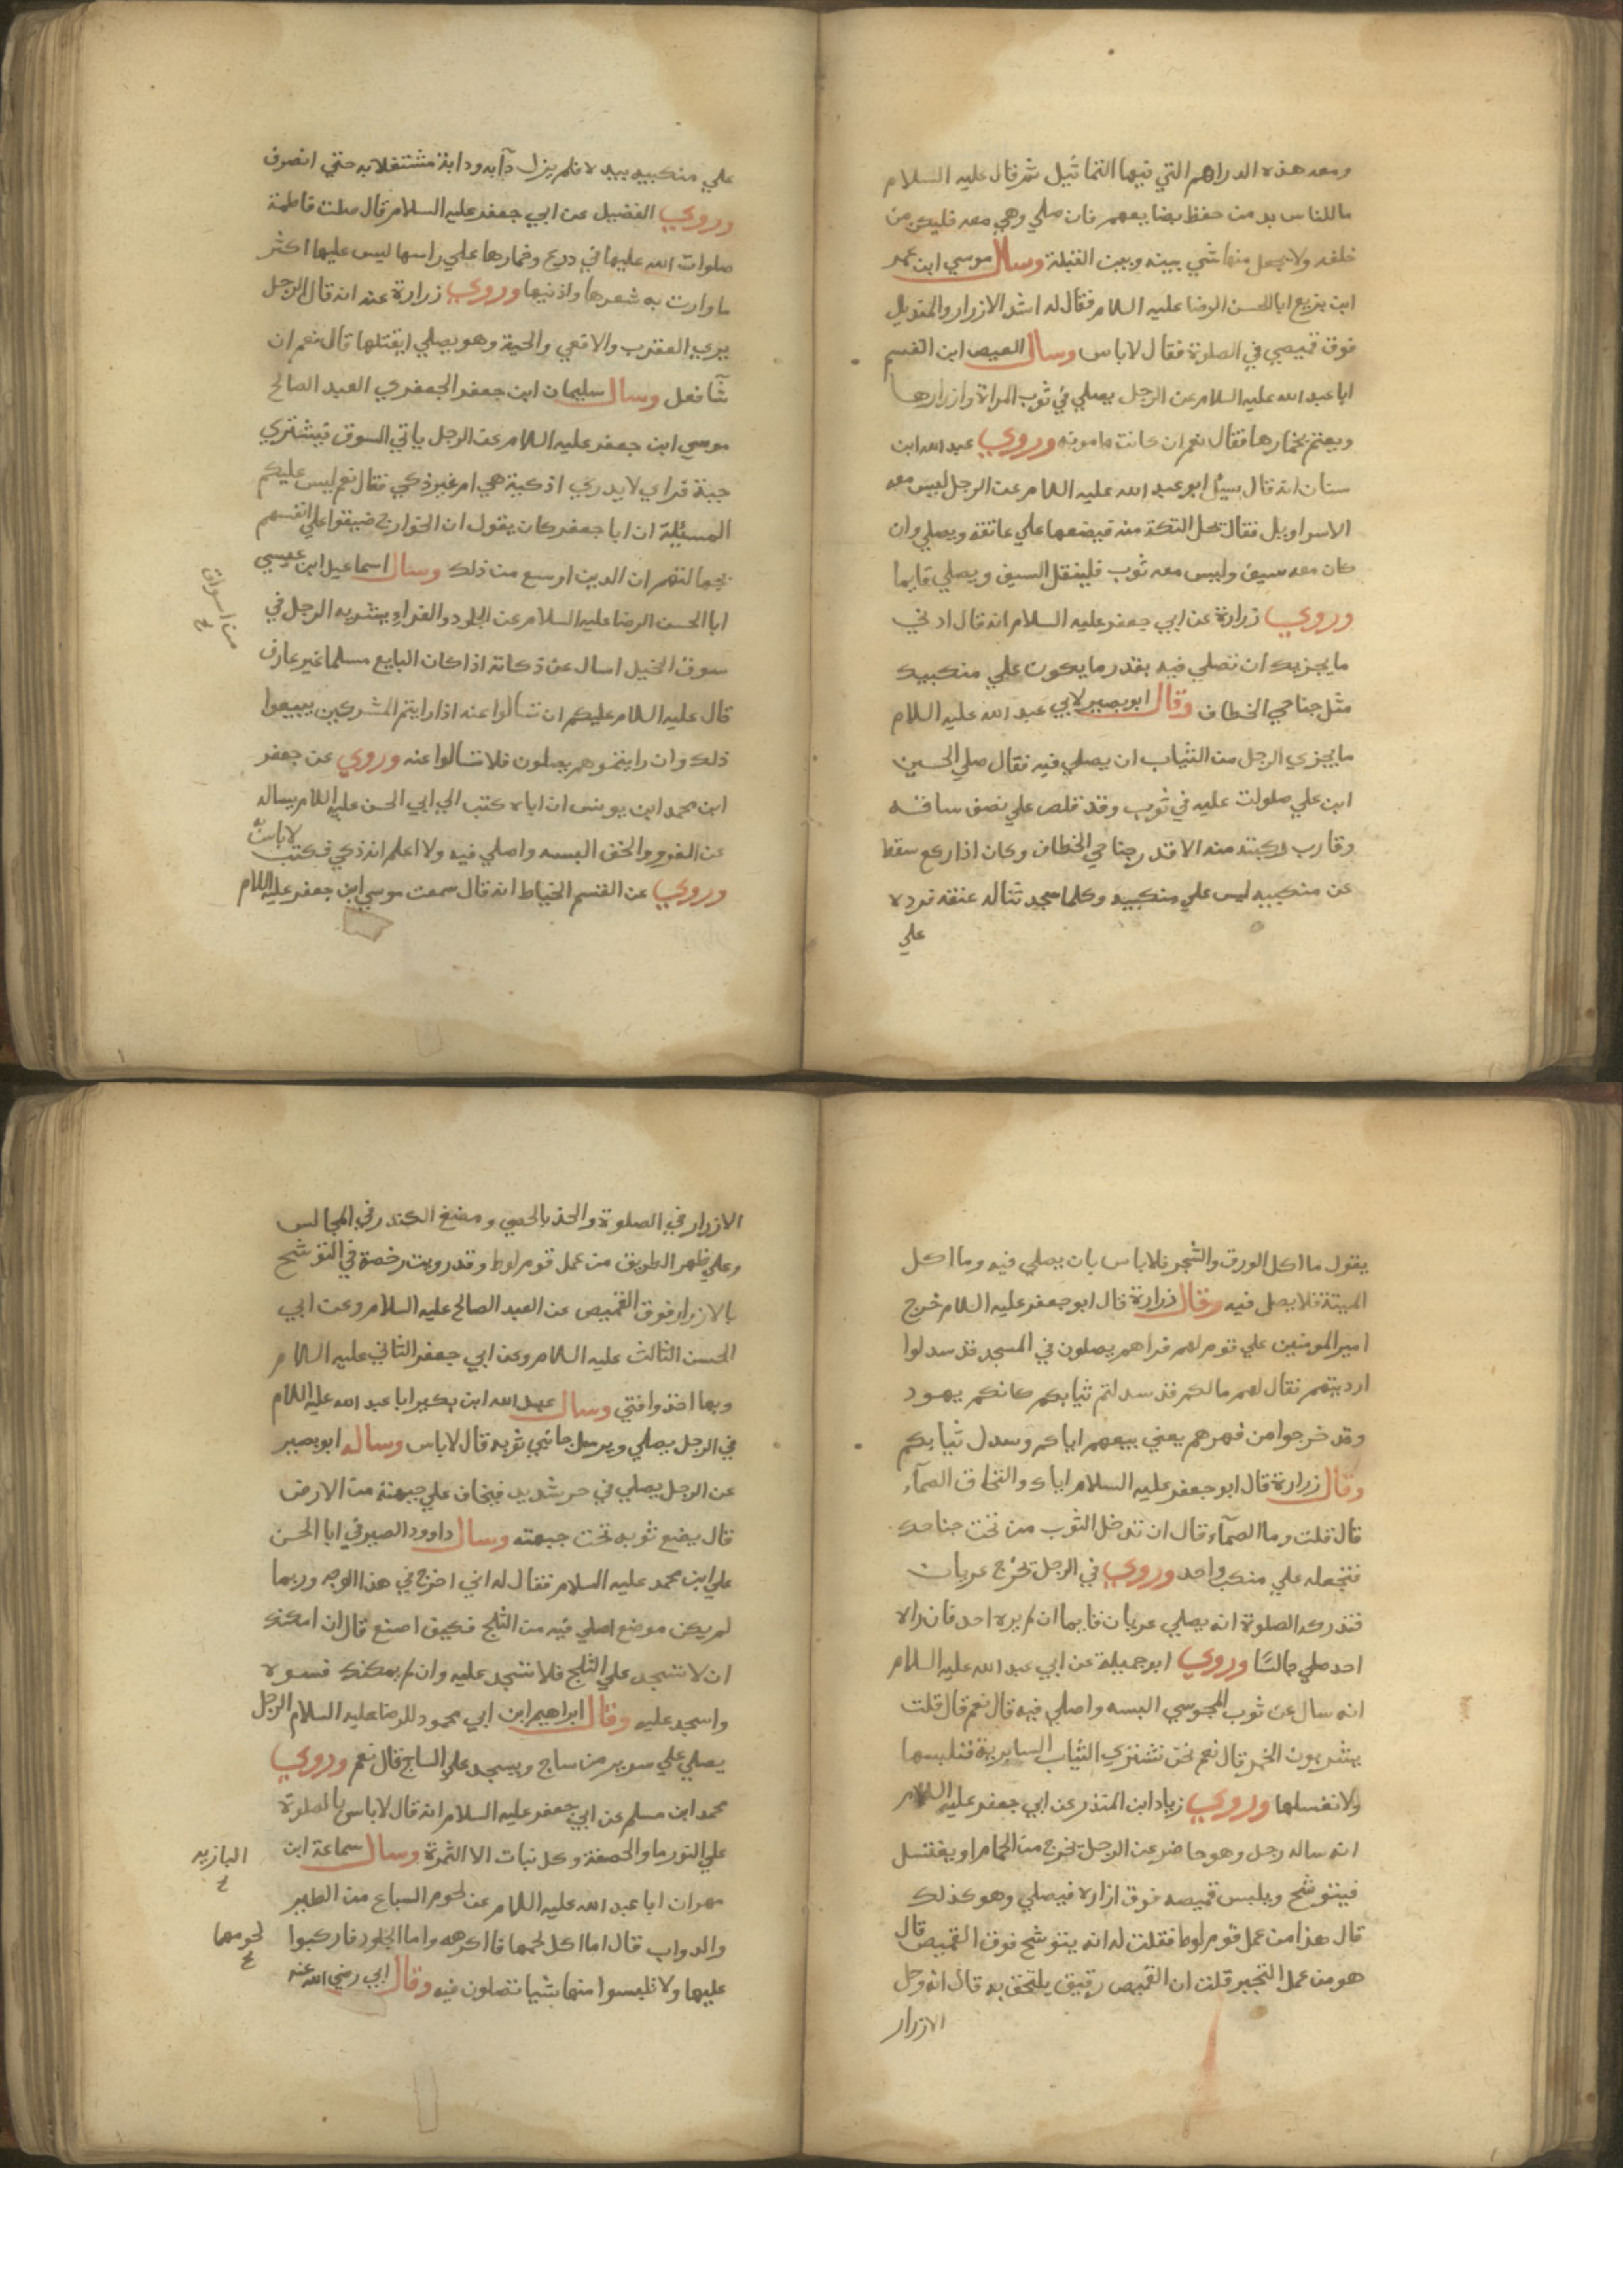 ومعه هذه الدراهم التي فيها التماثيل ثم قال عليه السلام
ما للناس بد من حفظ بضايعهم فان صلي وهي معه فليكن من
خلفه ولا يجعل منها شي بينه وبين القبلة وسال موسي ابن عمر
ابن بزيع ابا الحسن الرضا عليه السلام فقال له اشد الازرار والمنديل
فوق قميصي في الصلوة فقال لا باس وسال العيص ابن القسم
ابا عبد الله عليه السلام عن الرجل يصلي في ثوب المراة وازارها
ويعتم بخمارها فقال نعم ان كانت مامونه وروي عبد الله ابن
سنان انه قال سيل ابو عبد الله عليه السلام عن الرجل ليس معه
الا سراويل فقال تحل التكة منه فيضعها علي عاتقه ويصلي وان
كان معه سيف وليس معه ثوب فليتقل السيف ويصلي قايما
وروي زرارة عن ابي جعفر عليه السلام انه قال ادني
ما يجزيك ان تصلي فيه بقدر ما يكون علي منكبيك
مثل جناحي الخطاف وقال ابو بصير لابي عبد الله عليه السلام
ما يجزي الرجل من الثياب ان يصلي فيه فقال صلي الحسين
ابن علي صلوات عليه في ثوب وقد قلص علي نصف ساقه
وقارب ركبته منه الا قدر جناحي الخطاف وكان اذا ركع سقط
عن منكبيه ليس علي منكبيه وكلما سجد تناله عنقه فرده
علي
علي منكبيه بيده فلم يزل دآبه ودابة مشتغلا به حتي انصرف
وروي الفضيل عن ابي جعفر عليه السلام قال صلت فاطمة
صلوات الله عليها في درع وخمارها علي راسها ليس عليها اكثر
ما وارت به شعرها واذنيها وروي زرارة عنه انه قال الرجل
يري العقرب والافعي والحية وهو يصلي ايقتلها قال نعم ان
شآ فعل وسال سليمان ابن جعفر الجعفري العبد الصالح
موسي ابن جعفر عليه السلام عن الرجل ياتي السوق فيشتري
جبة فراي لا يدري اذكية هي ام غير ذكي فقال نعم ليس عليكم
المسئلة ان ابا جعفر كان يقول ان الخوارج ضيقوا علي انفسهم
بجهالتهم ان الدين اوسع من ذلك وسال اسماعيل ابن عيسي
ابا الحسن الرضا عليه السلام عن الجلود والفراء يشتريه الرجل في
من اسواق خ
سوق الخيل اسال عن ذكاته اذا كان البايع مسلما غير عارف
قال عليه السلام عليكم ان تسالوا عنه اذا رايتم المشركين يبيعوا
ذلك وان رايتموهم يصلون فلا تسالوا عنه وروي عن جعفر
ابن محمد ابن يونس ان اباه كتب الي ابي الحسن عليه السلام يساله
عن الفرو والخف البسه واصلي فيه ولا اعلم انه ذكي فكتب لا باس به
وروي عن القسم الخياط انه قال سمعت موسي ابن جعفر عليه السلام
يقول ما اكل الورق والشجر فلا باس بان يصلي فيه وما اكل
الميتة فلا يصل فيه وقال زرارة قال ابو جعفر عليه السلام خرج
امير المومنين علي قوم لهم فراهم يصلون في المسجد قد سدلوا
ارديتهم فقال لهم مالكم قد سدلتم ثيابكم كانكم يهود
وقد خرجوا من فهرهم يعني بيعهم اياكم وسدل ثيابكم
وقال زرارة قال ابو جعفر عليه السلام اياك والتحاف الصمآء
قال قلت وما الصمآء قال ان تدخل الثوب من تحت جناحك
فتجعله علي منكب واحد وروي في الرجل تخرج عريان
فتدركه الصلوة انه يصلي عريان قايما ان لم يره احد فان راه
احد صلي جالسا وروي ابو جميلة عن ابي عبد الله عليه السلام
انه سال عن ثوب المجوسي البسه واصلي فيه قال نعم قال قلت
يشربون الخمر قال نعم نحن نشتري الثياب السابرية فنلبسها
ولا نغسلها وروي زياد ابن المنذر عن ابي جعفر عليه السلام
انه ساله رجل وهو حاضر عن الرجل يخرج من الحمام او يغتسل
فيتوشح ويلبس قميصه فوق ازاره فيصلي وهو كذلك
قال هذا من عمل قوم لوط فقلت له انه يتوشح فوق القميص قال
هو من عمل التجبر قلت ان القميص رقيق يلتحف به قال انه وحل
الازرار
الازرار في الصلوة والحذ بالحصي ومضغ الكندر في المجالس
وعلي ظهر الطريق من عمل قوم لوط وقد رويت رخصة في التوشح
بالازرار فوق القميص عن العبد الصالح عليه السلام وعن ابي
الحسن الثالث عليه السلام وعن ابي جعفر الثاني عليه السلام
وبها اخذ وافتي وسال عبد الله ابن بكير ابا عبد الله عليه السلام
في الرجل يصلي ويرسل جانبي ثوبه قال لا باس وساله ابو بصير
عن الرجل يصلي في حر شديد فيخاف علي جبهته من الارض
قال يضع ثوبه تحت جبهته وسال داوود الصيرفي ابا الحسن
علي ابن محمد عليه السلام فقال له اني اخرج في هذا الوجه وربما
لم يكن موضع اصلي فيه من الثلج فكيف اصنع قال ان امكنك
ان لا تسجد علي الثلج فلا تسجد عليه وان لم يمكنك فسوه
واسجد عليه وقال ابراهيم ابن ابي محمود للرضا عليه السلام الرجل
يصلي علي سرير من ساج ويسجد علي الساج قال نعم وروي
محمد ابن مسلم عن ابي جعفر عليه السلام انه قال لا باس بالصلوة
علي البوريا والخصفة وكل نبات الا الثمرة وسال سماعة ابن
مهران ابا عبد الله عليه السلام عن لحوم السباع من الطير
والدواب قال اما اكل لحمها فااكرهه واما الجلود فاركبوا
لحومها خ
عليها ولا تلبسوا منها شيا تصلون فيه وقال ابي رضي الله عنه